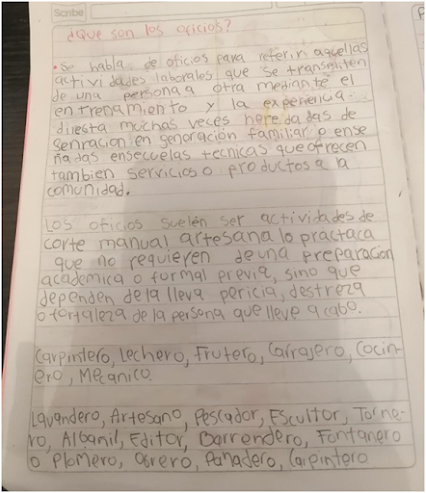 Scribe
¿Que son los oficios?
• Se habla de oficios para referir aquellas
actividades laborales que se transmiten
de una persona a otra mediante el
entrenamiento y la experiencia
diresta muchas veces heredadas de
senración en generación familiar o ense
ñadas ensecuelas tecnicas que ofrecen
tambien servicios o productos a la
comunidad.
Los oficios suelen ser actividades de
corte manual artesana lo practaca
que no requieren de una preparación
academica o formal previa, sino que
dependen de la lleva pericia, destreza
o fortaleza de la persena que lleve a cabo.
Carpintero, Lechero, Frutero, Carrajero, Cocin-
ero, Mecanico.
Lavandero, Artesano, Pescador, Escultor, Torne-
ro, Albanil, Editor, Barrendero, Fontanero
o Plomero, obrero, Panadero, Carpintero